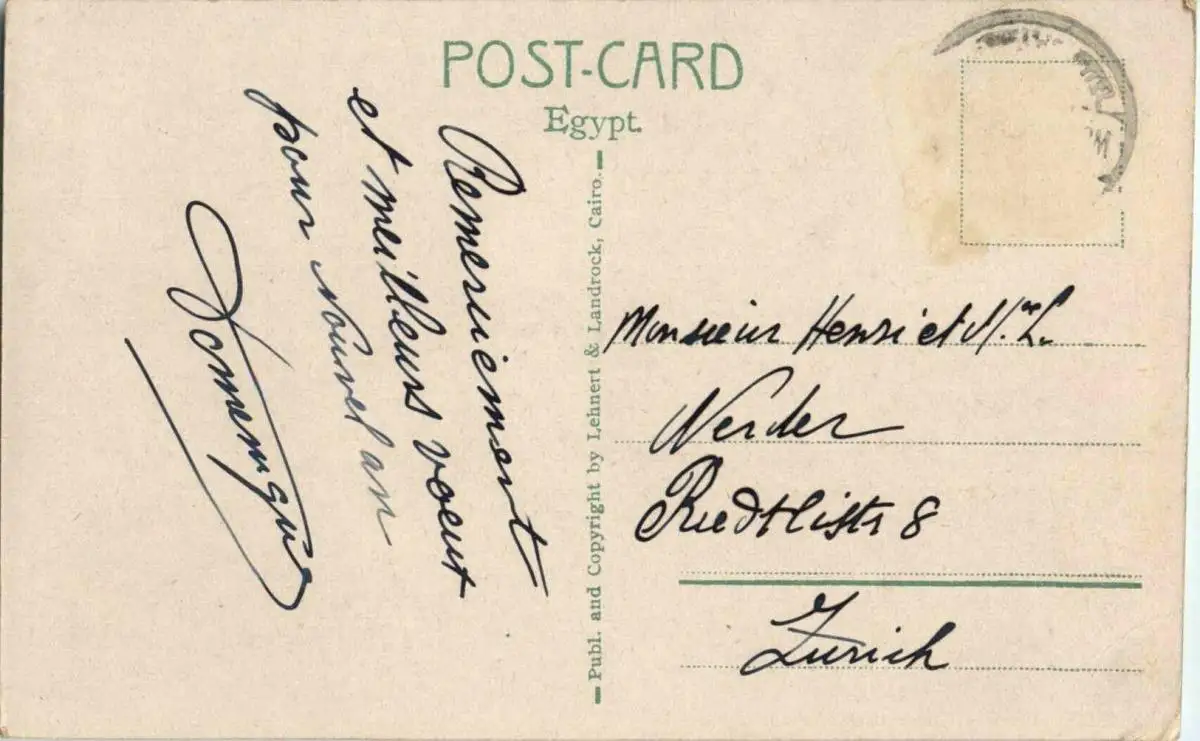 POST-CARD
Egypt.
Remerciement
et meilleurs voeux
pour nouvel an
Publ. and Copyright by Lehnert & Landrock, Cairo.
Monsieur Henri et M. L.
Werder
Riedtlistr 8
Zurich